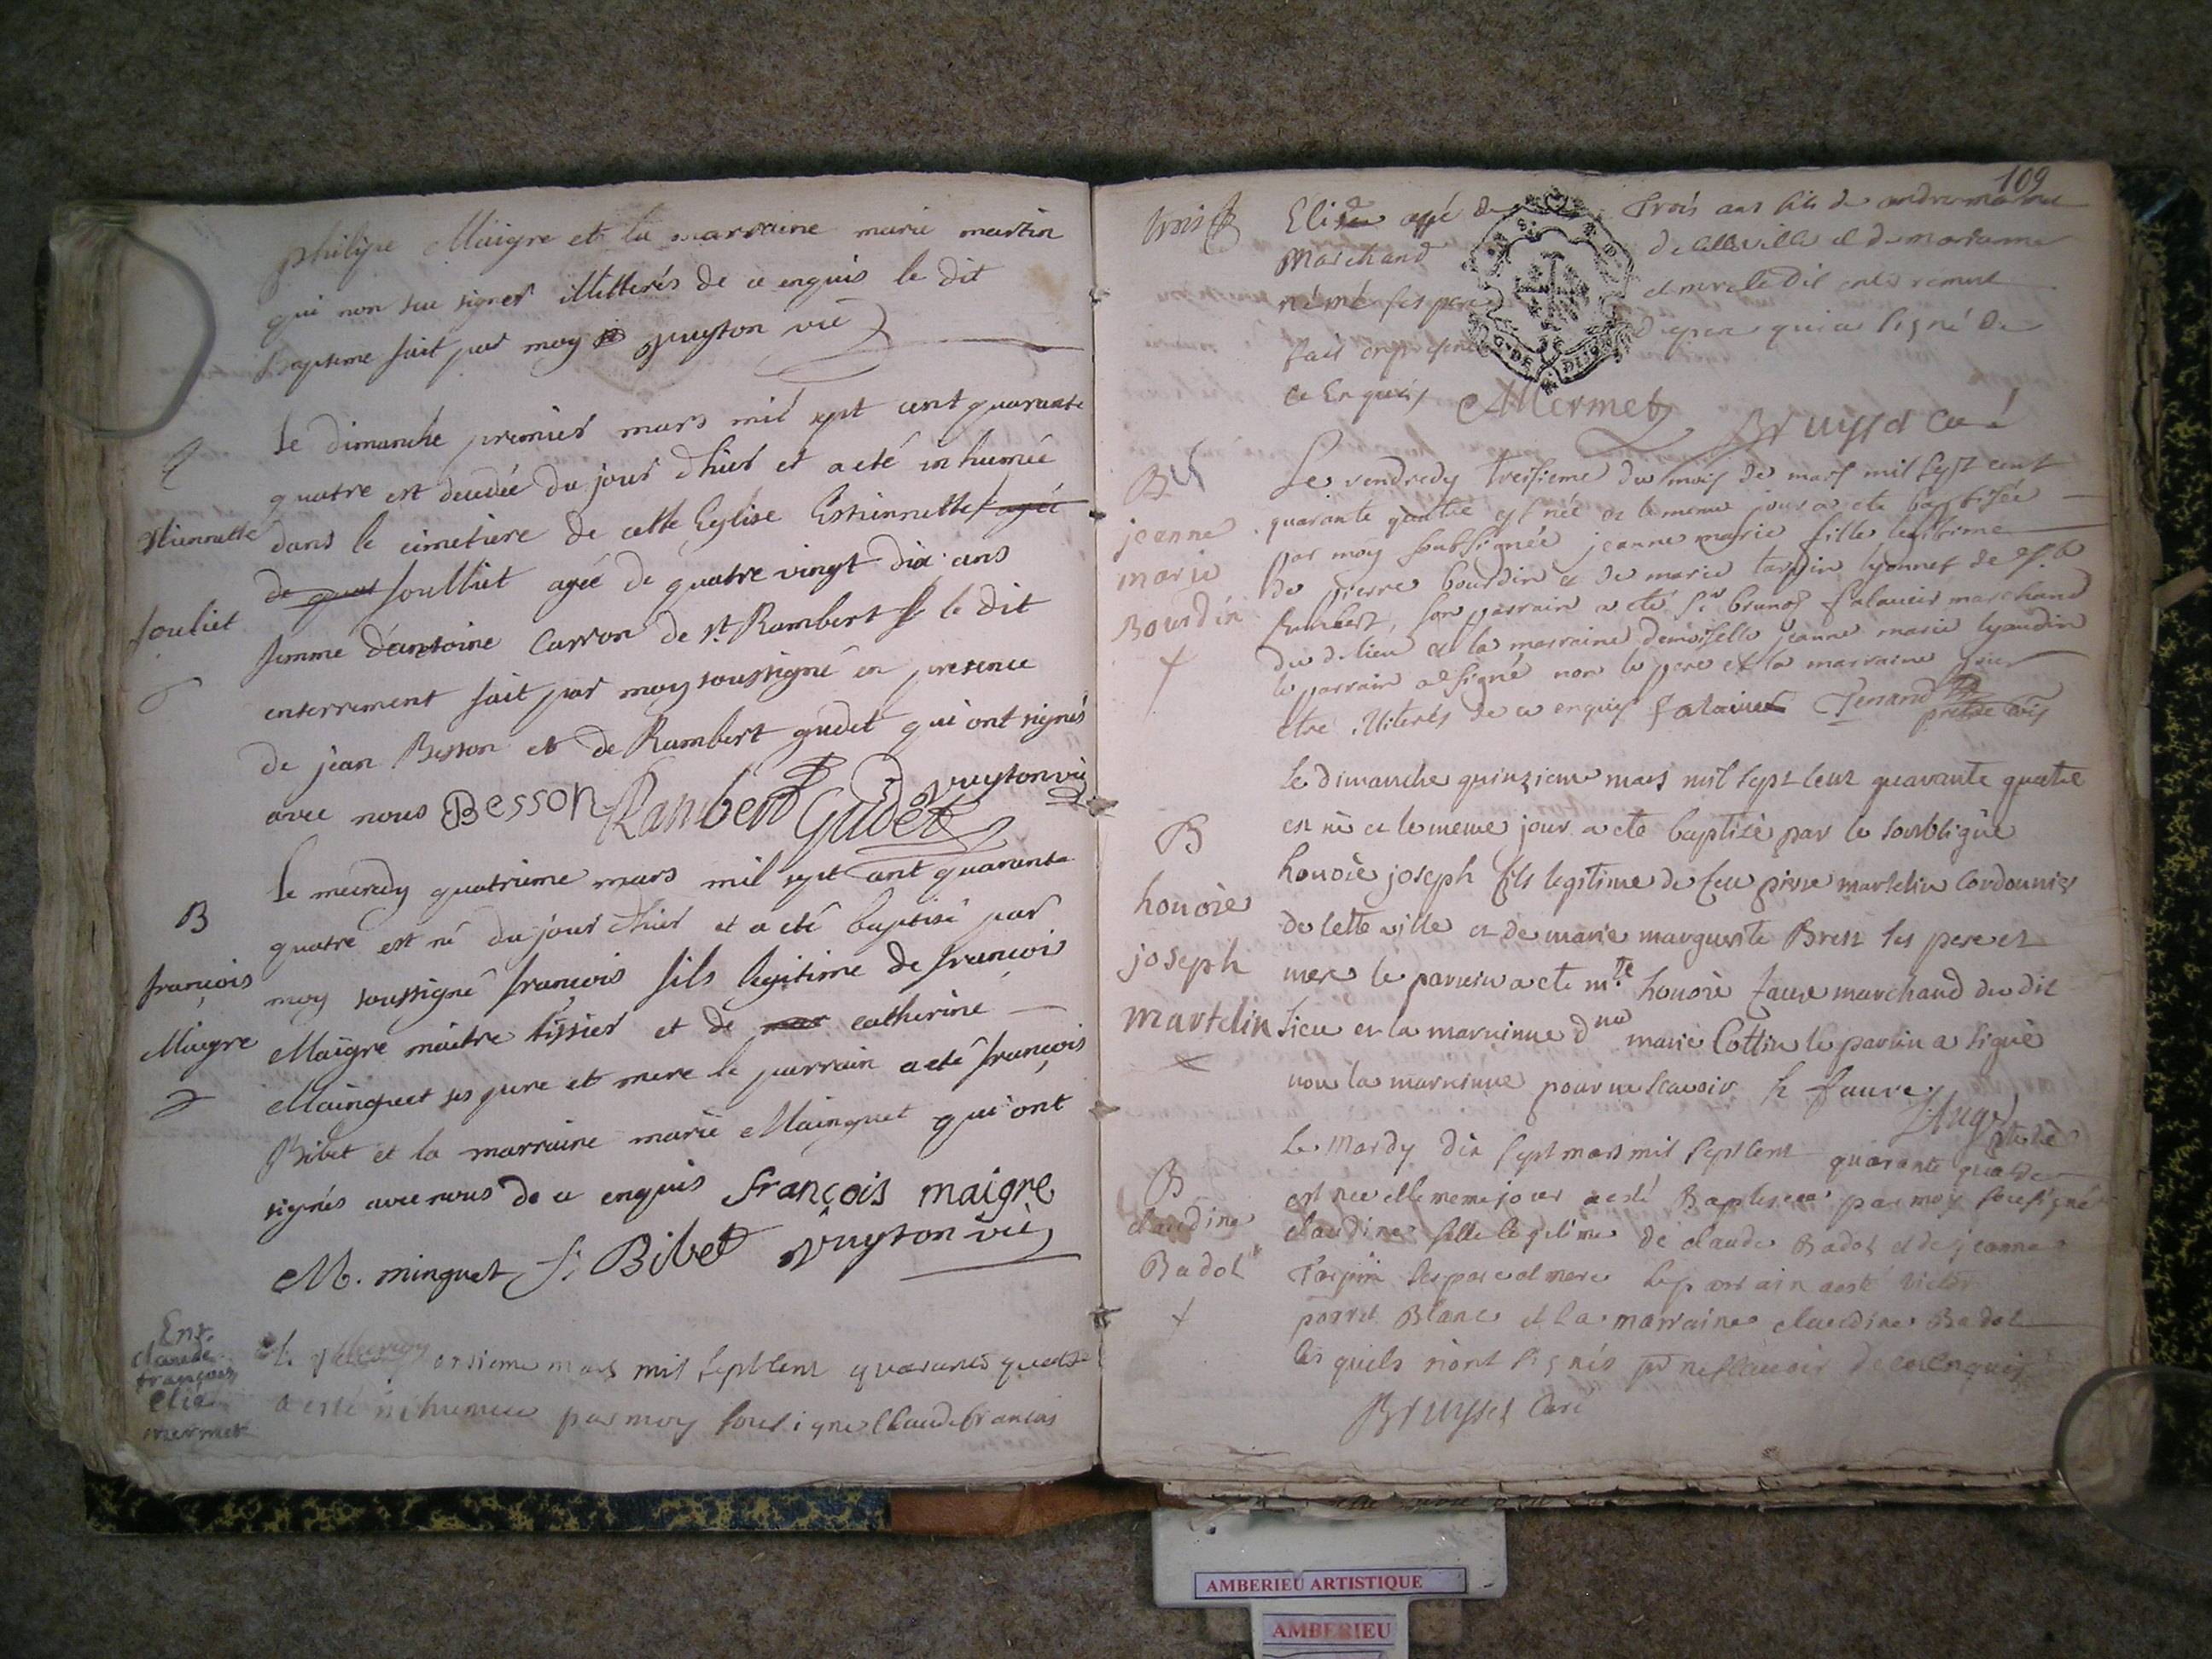 philipe Maigre et la marraine marie martin
qui non sue signer illitterés de ce enquis le dit
bapteme fait par moy Guyton vic
Le dimanche premier mars mil sept cent quarante
quatre est decedée du jour d'hier et a eté inhumée
Etiennette
dans le cimetiere de cette Eglise Estiennette agée
de quat soulliet agée de quatre vingt dix ans
souliet
femme d'antoine Carron de st. Rambert le dit
enterrement fait par moy soussigné en presence
de jean Besson et de Rambert gudet qui ont signés
avec nous Besson Rambert Gudet Guyton vic
Le mecredy quatrieme mars mil sept cent quarante
B
quatre est né du jour d'hier et a eté baptisé par
françois
moy soussigné françois fils legitime de françois
Maigre
Maigre maitre tissier et de mar catherine
Mainguet ses pere et mere le parrain a eté françois
Bibet et la marraine marie Mainguet qui ont
signés avec nous de ce enquis françois maigre
M. minguet f. Bibet Guyton vic
Ent.
claude
françois
Elie
mermet
Le onsieme mars mil sept cent quarante quatre
a esté inhumee par moy sousigne Claude francois
109
trois
Elie agé de trois ans fils de andre mermet
Marchand de cette ville et de marianne
fait en presence du pere qui a signé de
ce Enquis AMermet Bruysset curé
Le vendredy treisieme du mois de mars mil sept cent
B
quarante quatre est née et le meme jour a ete baptisée
jeanne
marie
Bourdin
par moy soubsignée jeanne marie fille legitime
de pierre bourdin et de marie tarpin lyonnet de st.
Rambert, son parrain a eté sr. brunos falavier marchand
du d. lieu et la marraine demoiselle jeanne marie lyaudin
le parrain a signé non le pere et la marraine pour
etre illiterés de ce enquis falavier Tenand pretre vic
Le dimanche quinzieme mars mil sept cent quarante quatre
B
est né et le meme jour a eté baptisé par le soubsigné
honoré
honoré joseph fils legitime de feu pierre martelin Cordounier
de cette ville et de marie marguerite Bret ses pere et
joseph
mere le parrein a eté mre. honoré faure marchand du dit
martelin
lieu et la marreinne dlle marie Cottin le parrin a signé
non la marreinne pour ne scavoir h faure
Auge
Le Mardy dix sept mars mil sept cent quarante quatre
B
est nee et le meme jour a esté Baptisee par moy sousigné
claudine
claudine fille legitime de claude Badot et de jeanne
Badot
Tarpin ses pere et mere le parrain a esté victor
porret Blanc et la marraine claudine Badot
les quels n'ont signés pr ne scavoir de ce enquis
Bruysset Curé
AMBERIEU ARTISTIQUE
AMBERIEU